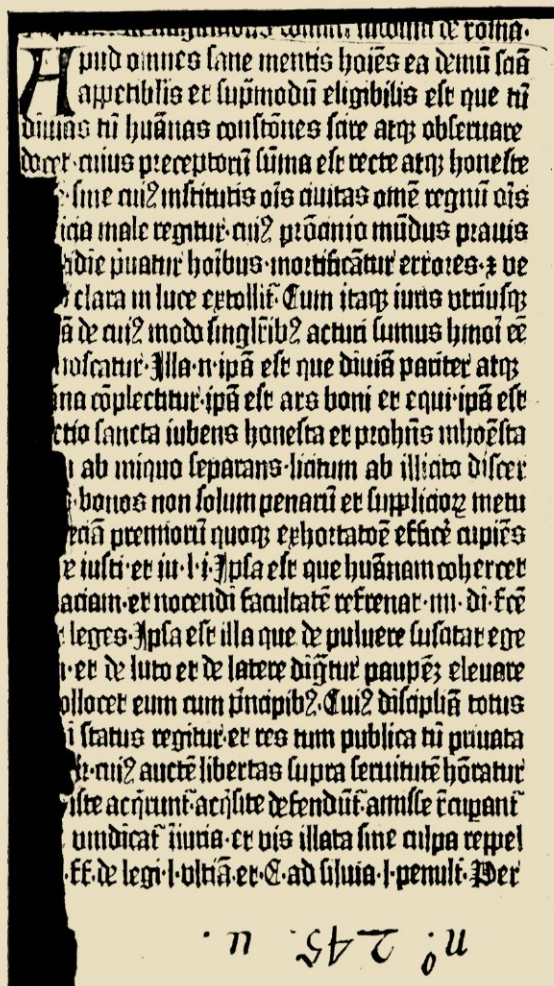 Apud omnes sane mentis hoiẽs ea demũ sciã
appetiblis et supͥmodũ eligibilis est que tũ
diuinas tũ huãnas constõnes scire atqꝫ obseruare
docet·cuius preceptorũ sũma est recte atqꝫ honeste
sine cuiꝰ institutis oĩs ciuitas omẽ regnũ oĩs
icia male regitur·cuiꝰ prõcinio mũdus prauis
die pͥuatur hoĩbus·mortificãtur errores·⁊ ve
clara in luce extollit̃·Cum itaqꝫ iuris vtriusqꝫ
ã de cuiꝰ modo singlͬibꝰ acturi sumus hmoĩ eẽ
noscatur·Illa·n·ipã est que diuiã pariter atqꝫ
na cõplectitur·ipã est ars boni et equi·ipã est
ctio sancta iubens honesta et prohñs inhoẽsta
ab iniquo separans·licitum ab illicito discer
bonos non solum penarũ et supplicioꝝ metu
eciã premiorũ quoqꝫ exhortatoẽ efficẽ cupiẽs
e iusti·et iu·l·i·Ipsa est que huãnam cohercet
aciam·et nocendi facultatẽ refrenat·iiii·di·fcẽ
leges·Ipsa est illa que de puluere suscitat ege
·et de luto et de latere dig̃tur paupẽꝫ eleuare
ollocet eum cum pͥncipibꝰ·Cuiꝰ discipliã totus
i status regitur·et res tum publica tũ priuata
r·cuiꝰ auctẽ libertas supra seruitutẽ hõratur
iste acq̃runt̃·acq̃site defendũt̃·amisse r̃cuperant̃
vindicat̃ iĩuria·et vis illata sine culpa reppel
·ff·de legi·l·vltiã·et·C·ad siluia·l·penult̃·Per
n.º 245. u.